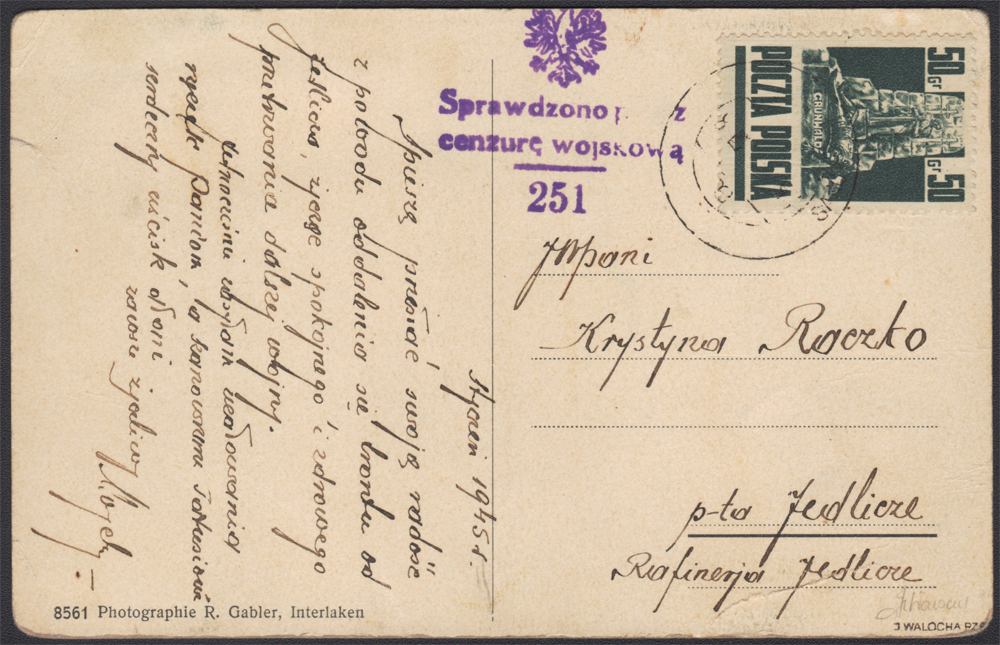 Styczeń 1945 r.
Spieszę przesłać swoją radość
z powodu oddalenia się frontu od
Jedlicza, życzę spokojnego i zdrowego
przetrwania dalszej wojny.
ucałowania
rączek Paniom, a
serdeczny uścisk dłoni
zawsze życzliwy
Sprawdzono p z
cenzurę wojskową
251
50 Gr
POCZTA POLSKA
GRUNWALD
Gr 50
JWPani
Krystyna Raczko
p-ta Jedlicze
Rafinerja Jedlicze
8561 Photographie R. Gabler, Interlaken
J WALOCHA PZF